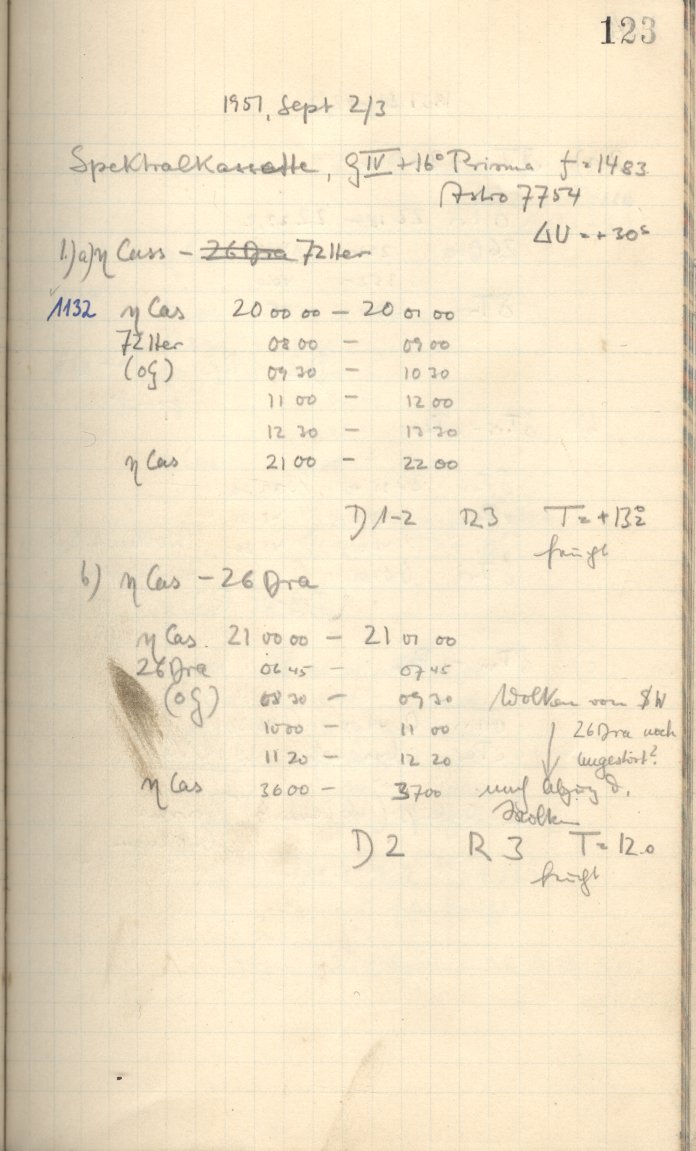 123
1951, Sept 2/3
Spektralkassette, g IV + 16° Prisma f = 1483
Astro 7754
ΔU = +30s
1.) a) η Cass – 26 Dra 72 Her
1132 η Cas 20 00 00 – 20 01 00
72 Her 08 00 – 09 00
(OG) 09 30 – 10 30
11 00 – 12 00
12 30 – 13 30
η Cas 21 00 – 22 00
D 1-2 R 3 T = +13.2°
feucht
b) η Cas – 26 Dra
η Cas. 21 00 00 – 21 01 00
26 Dra 06 45 – 07 45
(OG) 08 30 – 09 30 Wolken von SW
10 00 – 11 00 26 Dra noch
11 20 – 12 20 ungestört?
η Cas 36 00 – 37 00 nach Abzug d.
Wolken
D 2 R 3 T = 12.0
feucht